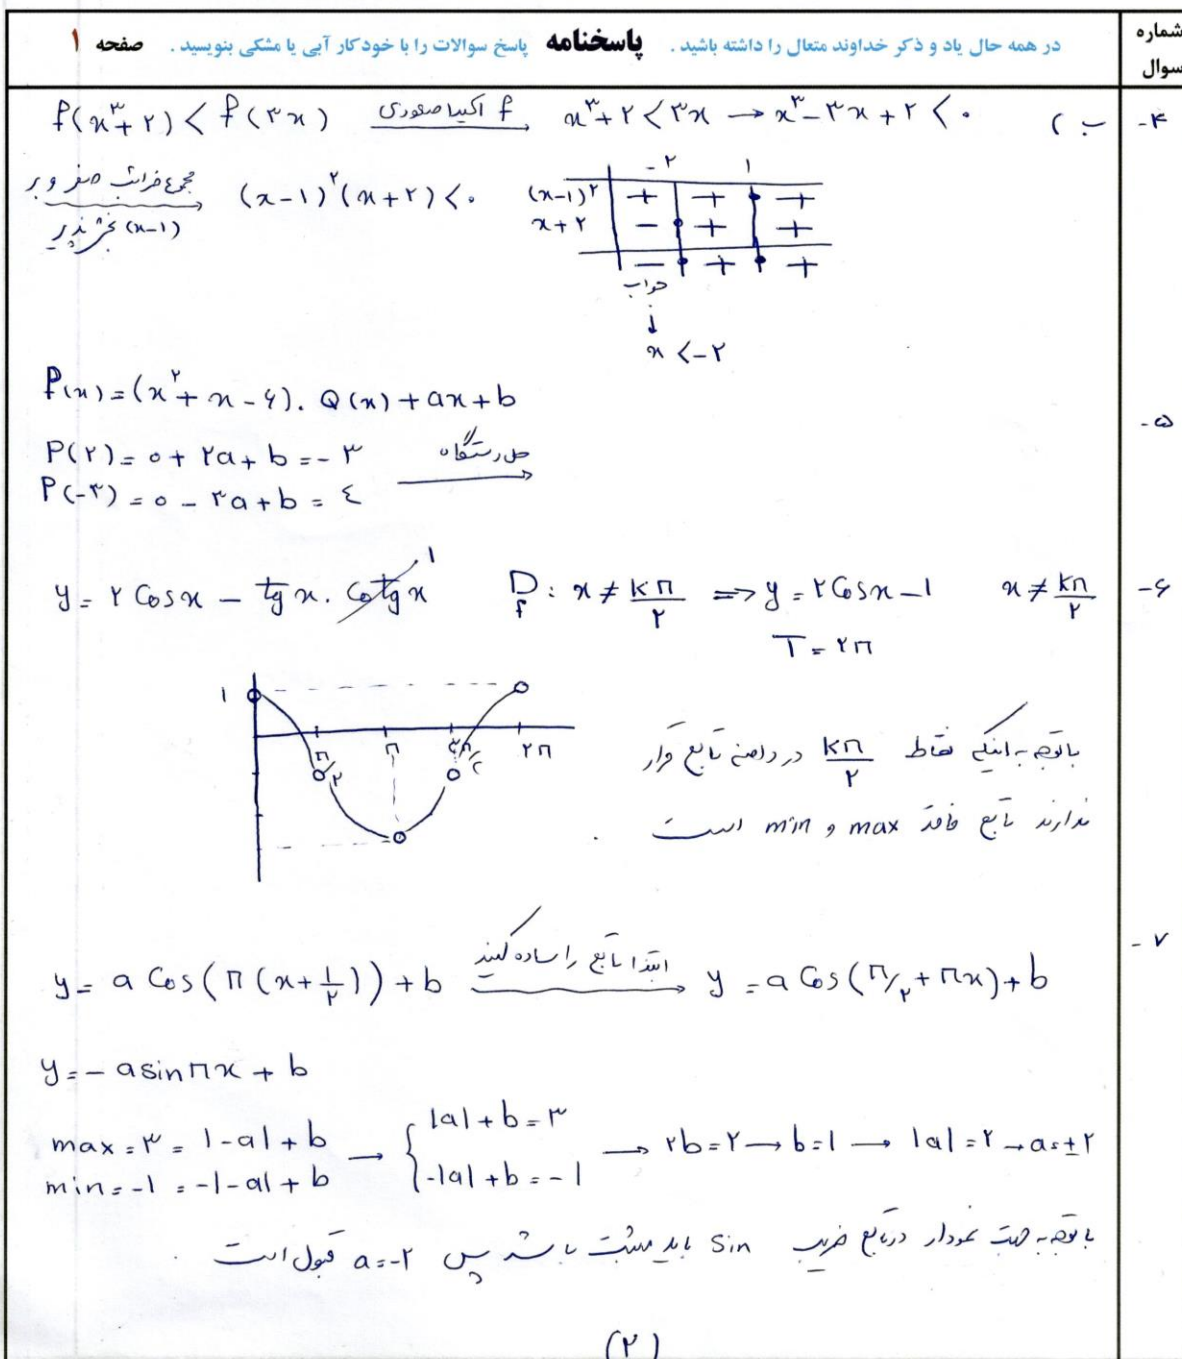 شماره سوال
در همه حال یاد و ذکر خداوند متعال را داشته باشید . پاسخنامه پاسخ سوالات را با خودکار آبی یا مشکی بنویسید . صفحه ۱
۴- ب )
f(x³+۲) < f(۳x) f اکیدا صعودی → x³+۲ < ۳x → x³-۳x+۲ < ۰
مجموع ضرایب صفر و بر (x-۱) بخش پذیر → (x-۱)²(x+۲) < ۰
-۲ ۱
(x-۱)² + + +
x+۲ - + +
- + +
جواب
↓
x < -۲
۵-
P(x) = (x²+x-۶). Q(x) + ax + b
P(۲) = ۰ + ۲a + b = -۳ حل دستگاه →
P(-۳) = ۰ - ۳a + b = ٤
۶-
y = ۲ Cos x - tg x . Cotg x ۱ D f : x ≠ kπ/۲ ⟹ y = ۲ Cos x - ۱ x ≠ kπ/۲
T = ۲π
۱ π/۲ π ۳π/۲ ۲π
باتوجه به اینکه نقاط kπ/۲ در دامنه تابع قرار
ندارند تابع فاقد max و min است .
۷-
y = a Cos(π(x+۱/۲)) + b ابتدا تابع را ساده کنید → y = a Cos(π/۲ + πx) + b
y = - a sin πx + b
max = ۳ = |-a| + b → { |a| + b = ۳ → ۲b = ۲ → b = ۱ → |a| = ۲ → a = ±۲
min = -۱ = -|-a| + b -|a| + b = -۱
باتوجه به جهت نمودار درتابع ضریب Sin باید مثبت باشد پس a = -۲ قبول است .
(۲)